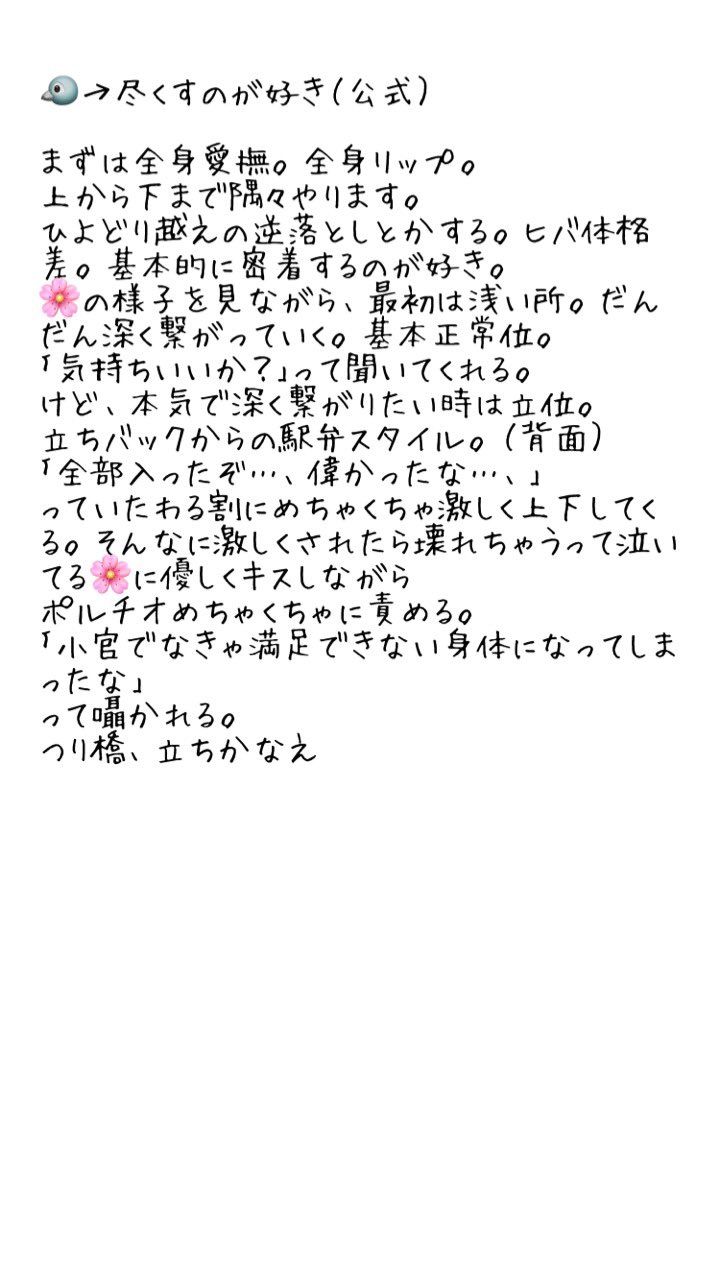 🐦→尽くすのが好き(公式)
まずは全身愛撫。全身リップ。
上から下まで隅々やります。
ひよどり越えの逆落としとかする。ヒバ体格
差。基本的に密着するのが好き。
🌸の様子を見ながら、最初は浅い所。だん
だん深く繋がっていく。基本正常位。
「気持ちいいか?」って聞いてくれる。
けど、本気で深く繋がりたい時は立位。
立ちバックからの駅弁スタイル。(背面)
「全部入ったぞ…、偉かったな…、」
っていたわる割にめちゃくちゃ激しく上下してく
る。そんなに激しくされたら壊れちゃうって泣い
てる🌸に優しくキスしながら
ポルチオめちゃくちゃに責める。
「小官でなきゃ満足できない身体になってしま
ったな」
って囁かれる。
つり橋、立ちかなえ